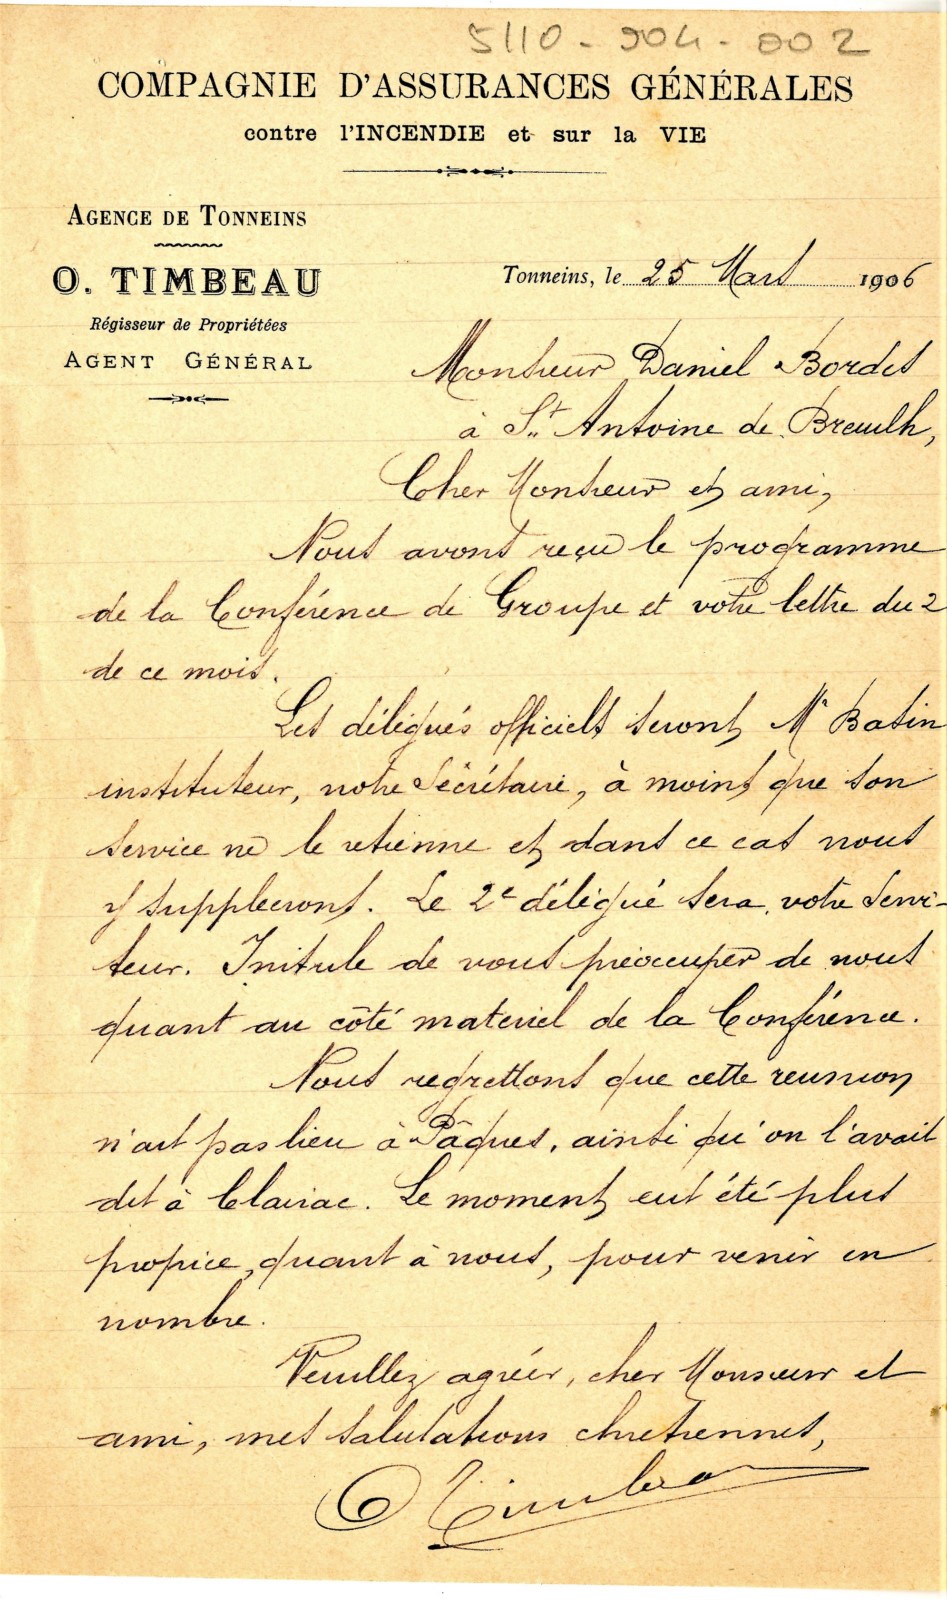 5110-904-002
COMPAGNIE D'ASSURANCES GÉNÉRALES
contre l'INCENDIE et sur la VIE
AGENCE DE TONNEINS
O. TIMBEAU
Régisseur de Propriétées
AGENT GÉNÉRAL
Tonneins, le 25 Mars 1906
Monsieur Daniel Bordes
à St Antoine de Breuilh,
Cher Monsieur et ami,
Nous avons reçu le programme
de la Conférence de Groupe et votre lettre du 2
de ce mois.
Les délégués officiels seront Mr Batin
instituteur, notre Sécrétaire, à moins que son
service ne le retienne et dans ce cas nous
y suppleerons. Le 2e délégué sera votre servi-
teur. Initule de vous préoccuper de nous
quant au côté materiel de la Conférence.
Nous regrettons que cette reunion
n'ait pas lieu à Pâques, ainsi qu'on l'avait
dit à Clairac. Le moment eut été plus
propice, quant à nous, pour venir en
nombre.
Veuillez agréer, cher Monsieur et
ami, mes salutations chretiennes,
O Timbeau